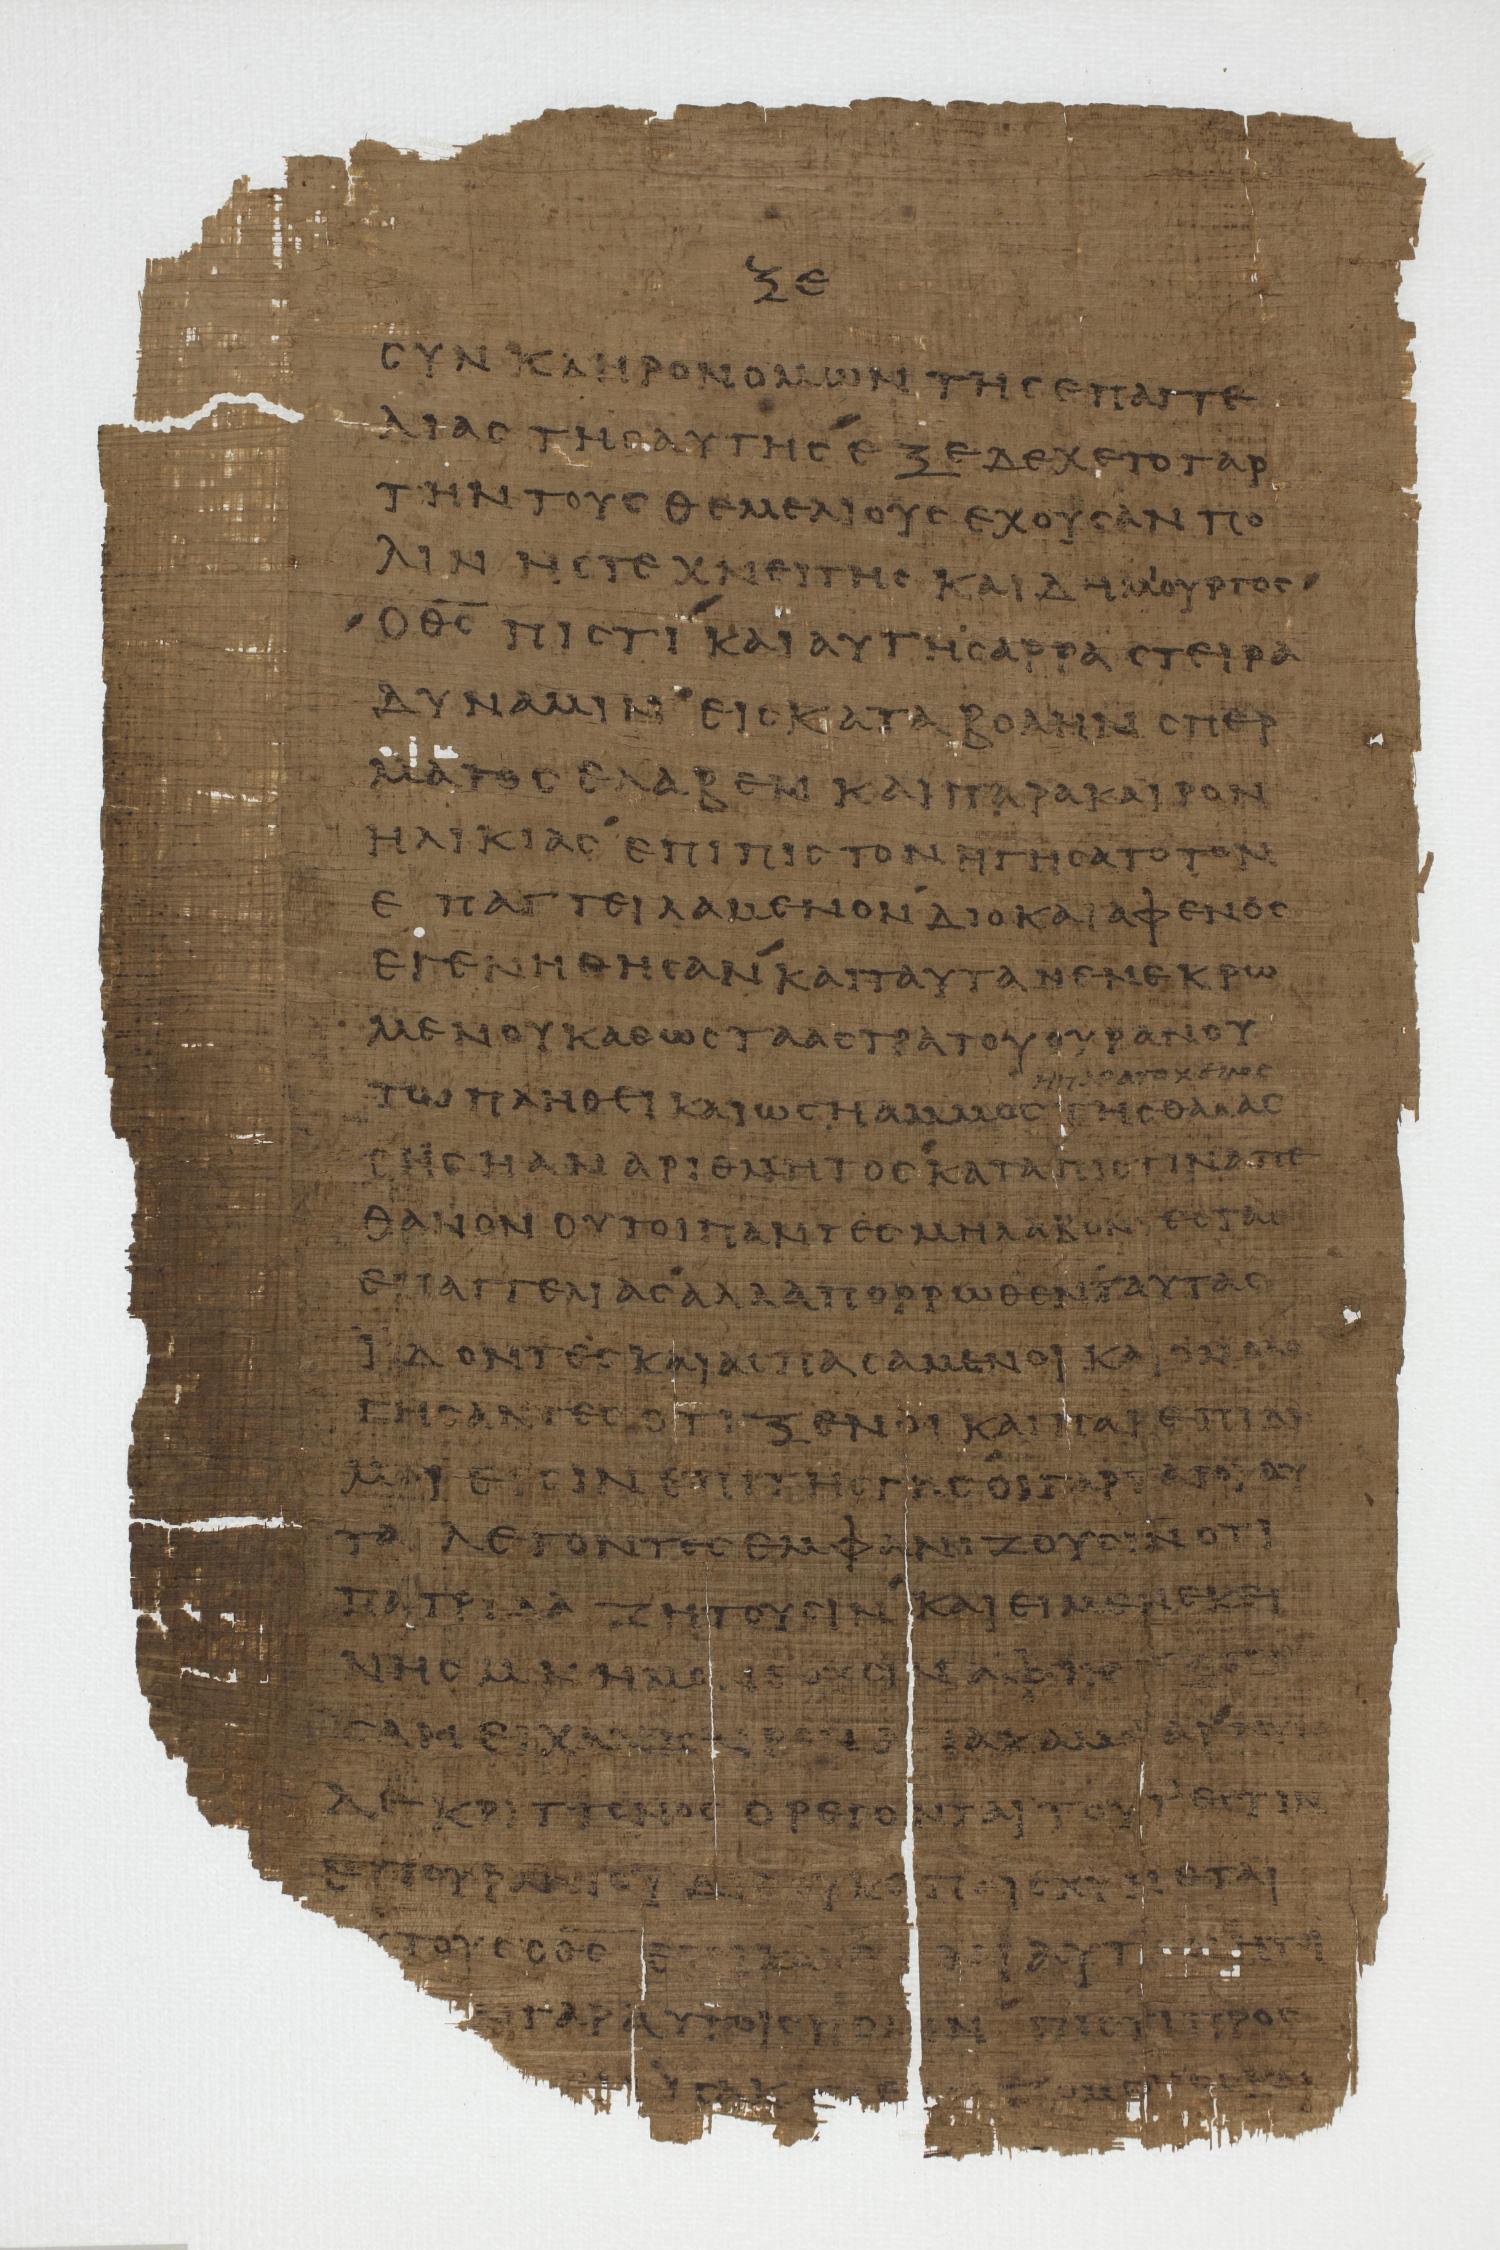 ξε
ϲυνκληρονομωντηϲεπαγγε
λιαϲτηϲαυτηϲ εξεδεχετογαρ
τηντουϲθεμελιουϲεχουϲανπο
λιν ηϲτεχνειτηϲκαιδημιουργοϲ
ο θ̅ϲ̅ πιϲτικαιαυτηϲαρραϲτειρα
δυναμινειϲκαταβοληνϲπερ
ματοϲελαβενκαιπαρακαιρον
ηλικιαϲεπιπιϲτονηγηϲατοτον
επαγγειλαμενονδιοκαιαφενοϲ
εγενηθηϲανκαιταυτανενεκρω
μενουκαθωϲτααϲτρατουουρανου
τωπληθεικαιωϲηαμμοϲγηϲθαλαϲ
ϲηϲηαναριθμητοϲκαταπιϲτιναπε
θανονουτοιπαντεϲμηλαβοντεϲταϲ
επαγγελιαϲαλλαπορρωθενταυταϲ
ϊδοντεϲκαιαϲπαϲαμενοικαιομολο
γηϲαντεϲοτιξενοικαιπαρεπιδη
μοιειϲινεπιτηϲγηϲοιγαρτατοιαυ
ταλεγοντεϲεμφανιζουϲινοτι
πατριδαζητουϲινκαιειμενεκει
νηϲ
ϲανειχ
δεκριττονοϲορεγονταιτουτεϲτιν
επουρανιου
τουϲ ο θ̅ϲ̅
γαραυτοιϲπολιν πιϲτιπροϲ